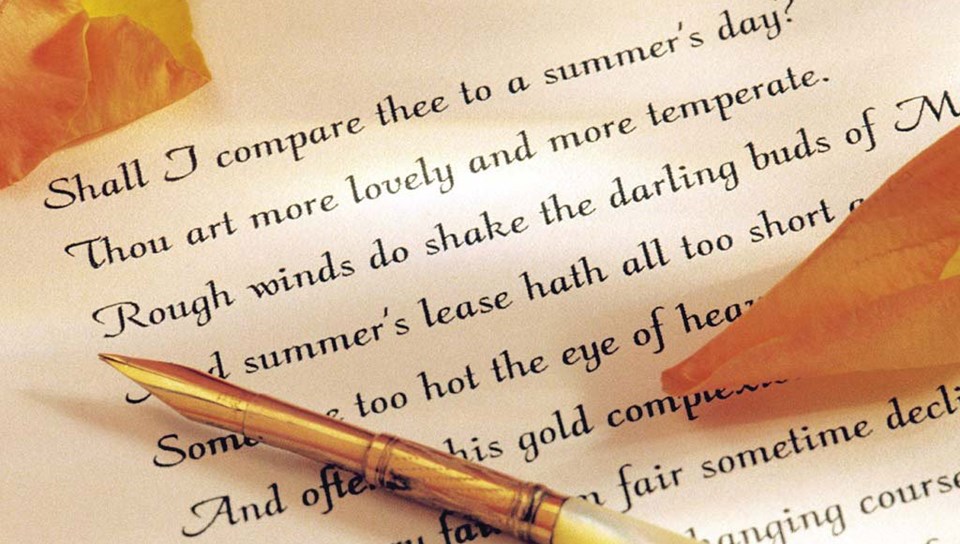 Shall I compare thee to a summer's day?
Thou art more lovely and more temperate.
Rough winds do shake the darling buds of M
d summer's lease hath all too short a
Som e too hot the eye of hea
And ofte his gold comple
fair sometime decli
hanging course